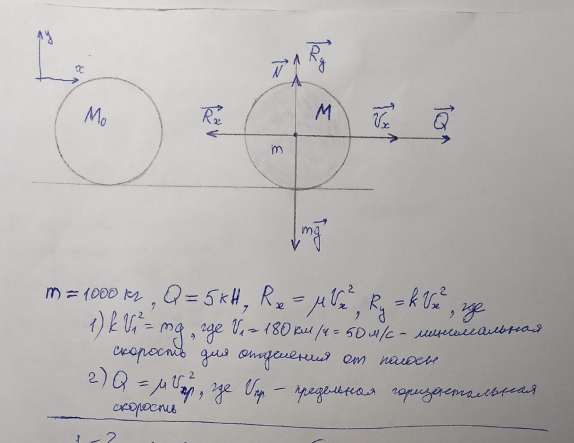 y
x
M₀
N⃗ R⃗y
R⃗x M V⃗x Q⃗
m
mg⃗
m = 1000 кг, Q = 5 кН, Rx = μVx², Ry = kVx², где
1) kV₁² = mg, где V₁ = 180 км/ч = 50 м/с – минимальная
скорость для отделения от полосы
2) Q = μVпр², где Vпр – предельная горизонтальная
скорость